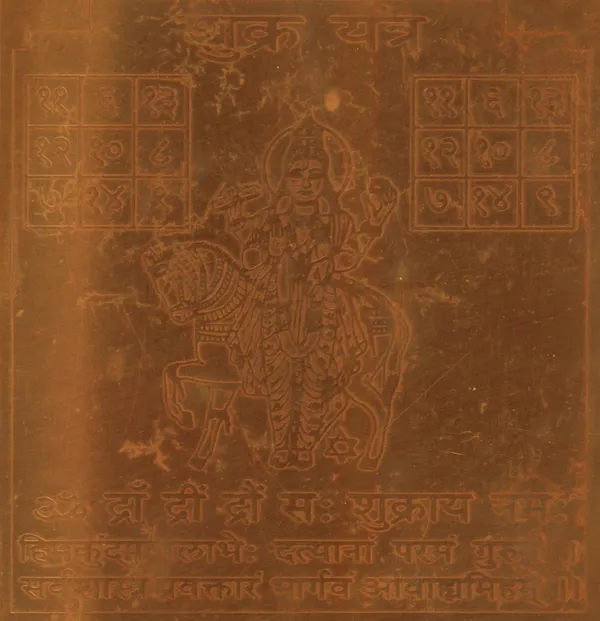 शुक्र यंत्र
११ ६ १३ ११ ६ १३
१२ १० ८ १२ १० ८
७ १४ ९ ७ १४ ९
ॐ द्राँ द्रीं द्रौं सः शुक्राय नमः
दत्यानां परमं
सर्वशास्त्र प्रवक्तारं भार्गवं आवाह्यमिहम् ।।